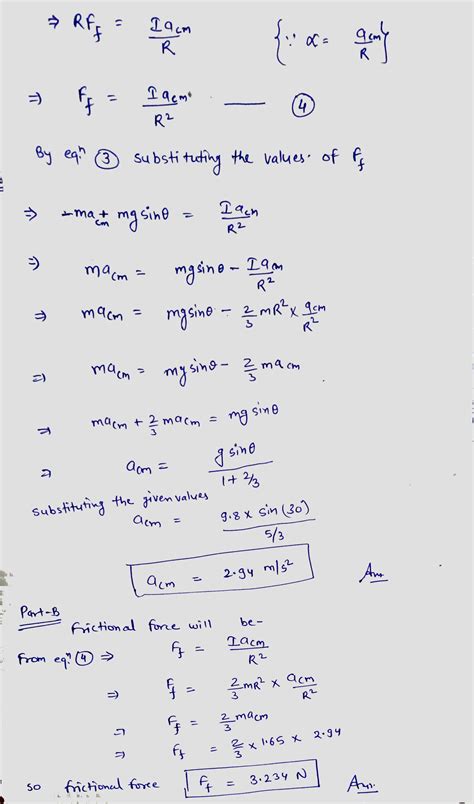 ⇒ RF_f = Ia_cm/R {∵ α = a_cm/R}
⇒ F_f = Ia_cm/R² —— ④
By eqⁿ ③ substituting the values of F_f
⇒ -ma_cm + mg sinθ = Ia_cm/R²
⇒ ma_cm = mg sinθ - Ia_cm/R²
⇒ ma_cm = mg sinθ - 2/3 mR² × a_cm/R²
⇒ ma_cm = mg sinθ - 2/3 ma_cm
⇒ ma_cm + 2/3 ma_cm = mg sinθ
⇒ a_cm = g sinθ/(1 + 2/3)
substituting the given values
a_cm = 9.8 × sin(30)/(5/3)
a_cm = 2.94 m/s² Ans
Part-B
frictional force will be-
From eqⁿ ④ ⇒ F_f = Ia_cm/R²
⇒ F_f = 2/3 mR² × a_cm/R²
⇒ F_f = 2/3 ma_cm
⇒ F_f = 2/3 × 1.65 × 2.94
so frictional force F_f = 3.234 N Ans.